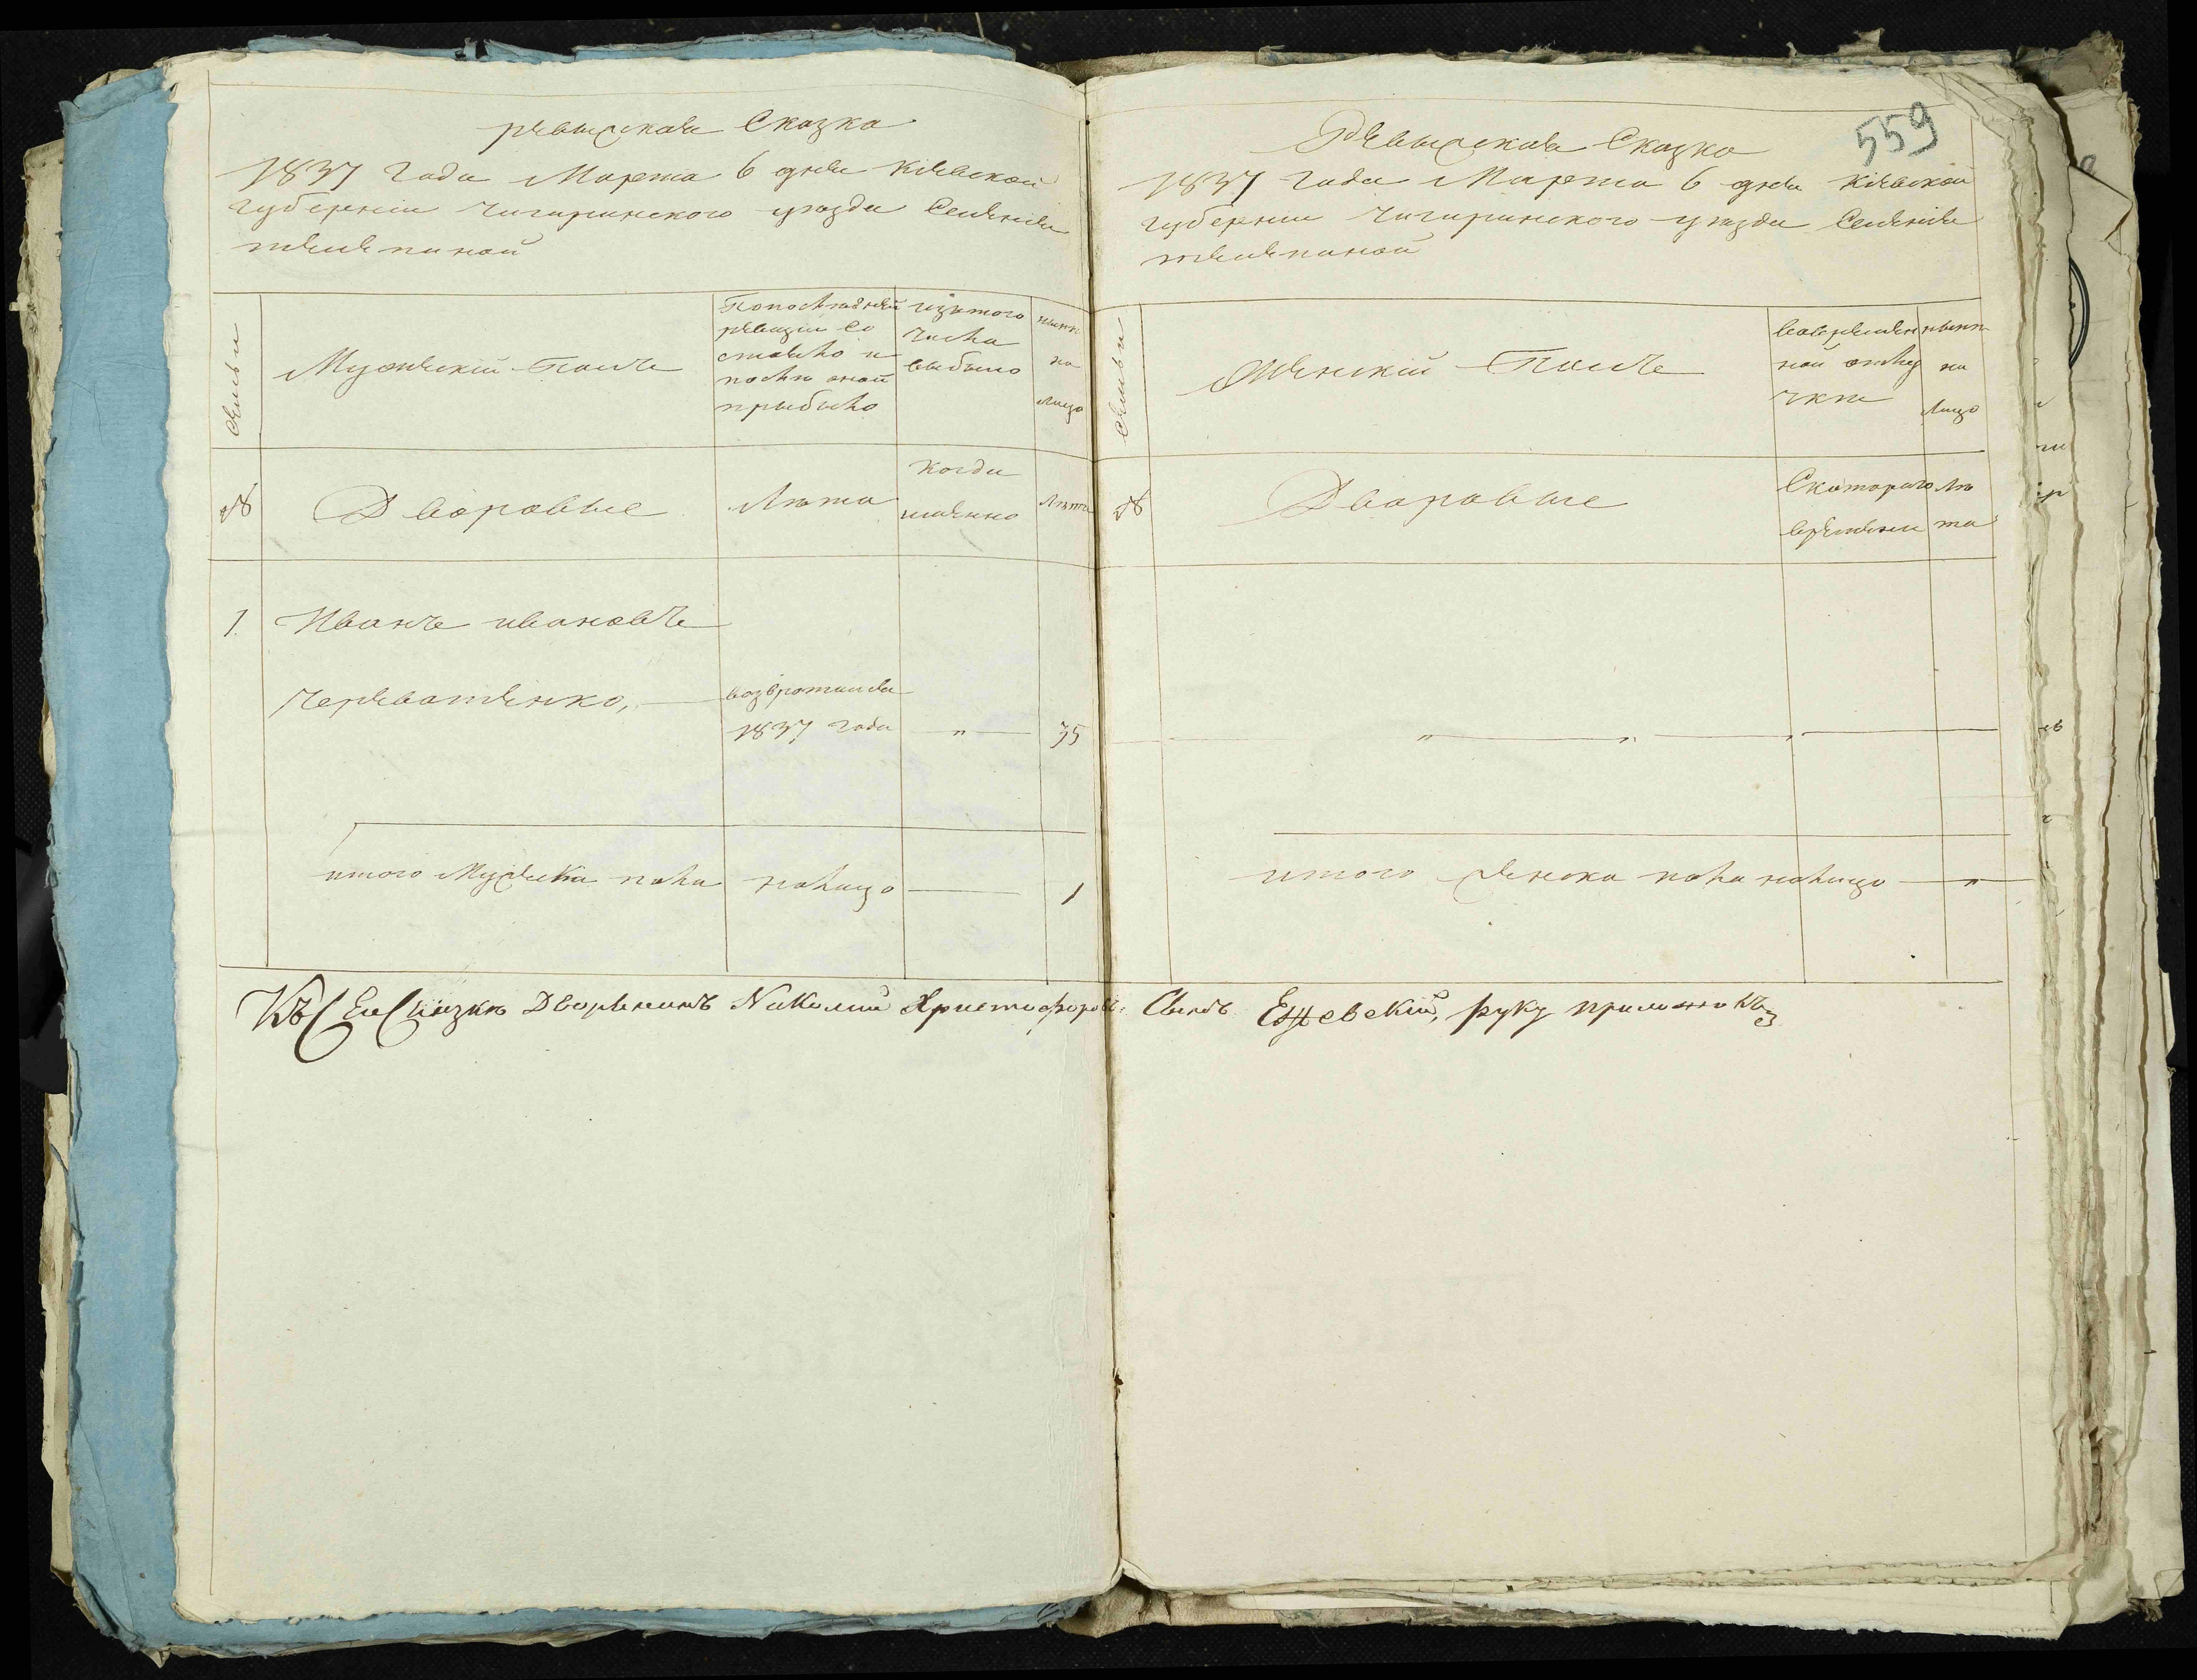 ревизская Сказка
1837 года Марта 6 дня Кіевской
губерніи Чигиринского уезда Селенія
телепиной
Семьи
Мужескій Полъ
По последней
ревизіи со
стояло и
после оной
прыбыло
изътого
числа
выбыло
ныне
на
лицо
№
Дворовые
Лета
когда
именно
Лета
1.
Иванъ ивановъ
Череватенко,
возвратился
1837 года
"
35
итого Мужска пола
налицо
1
559
Ревизская Сказка
1837 года Марта 6 дня Кіевской
губерніи Чигиринского уезда Селенія
телепиной
Семьи
Женскій Полъ
вовремен
ной отлу
чке
ныне
на
лицо
№
Дворовые
Скоторого
времени
Ле
та
" " "
итого женска пола налицо "
Къ Сей Сказке Дворенинъ Николай Христофоровъ Сынъ Ежевскій, руку приложилъ